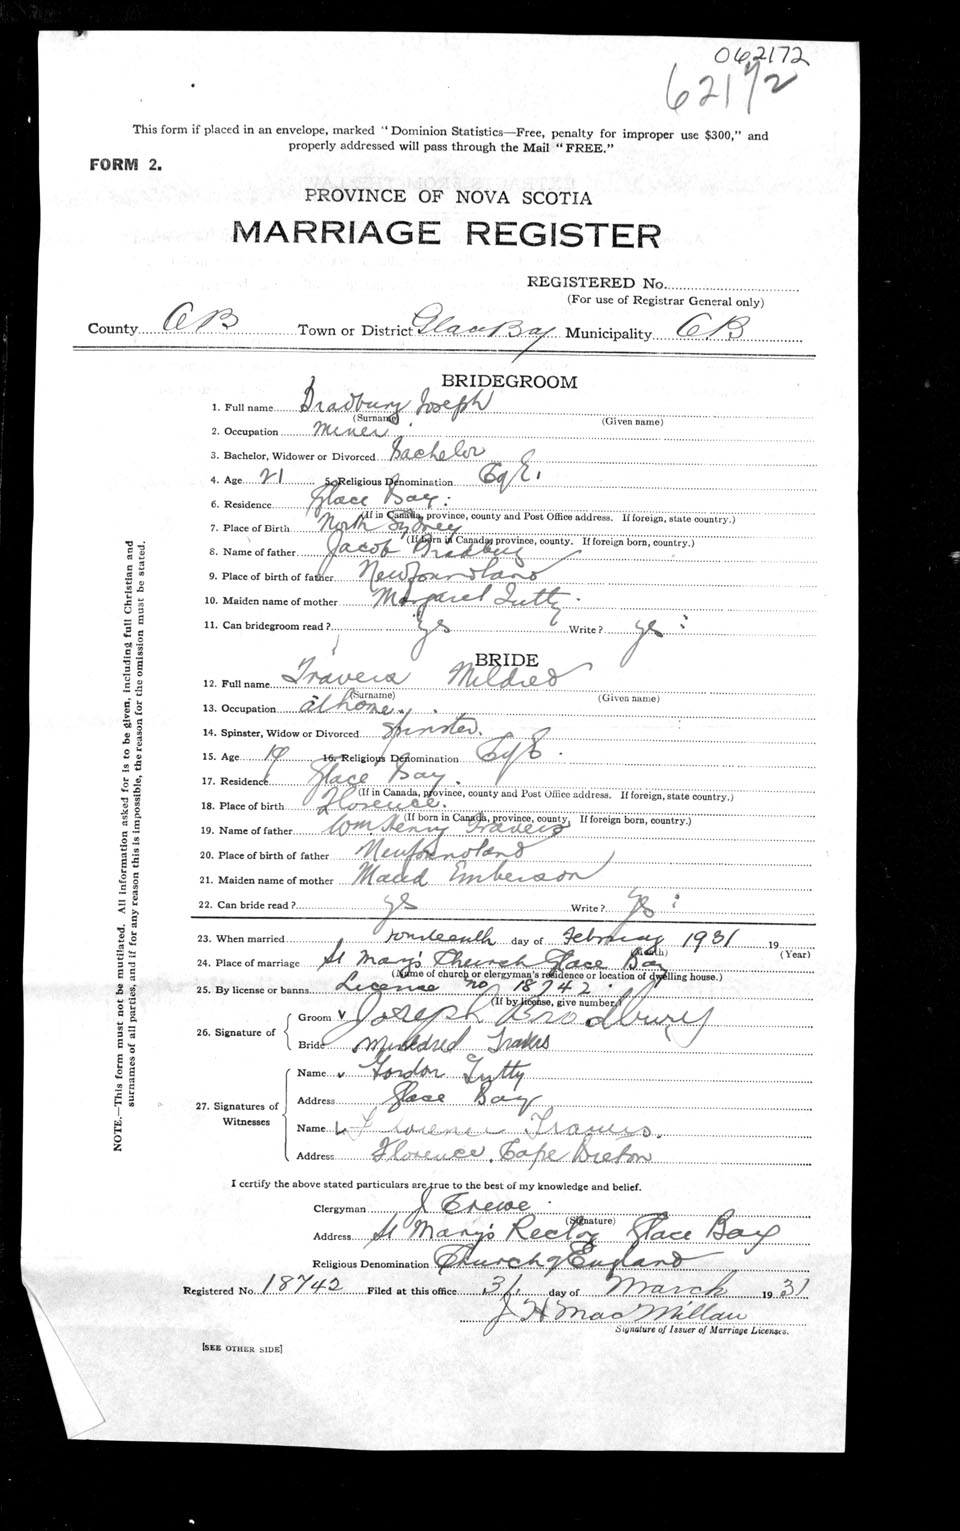 062172
62172
This form if placed in an envelope, marked "Dominion Statistics—Free, penalty for improper use $300," and
properly addressed will pass through the Mail "FREE."
FORM 2.
PROVINCE OF NOVA SCOTIA
MARRIAGE REGISTER
REGISTERED No.
(For use of Registrar General only)
County CB Town or District Glace Bay Municipality CB
BRIDEGROOM
1. Full name Bradbury Joseph
(Surname) (Given name)
2. Occupation miner
3. Bachelor, Widower or Divorced Bachelor
4. Age 21 5. Religious Denomination C of E.
6. Residence Glace Bay.
(If in Canada, province, county and Post Office address. If foreign, state country.)
7. Place of Birth North Sydney
(If born in Canada, province, county. If foreign born, country.)
8. Name of father Jacob Bradbury
9. Place of birth of father Newfoundland
10. Maiden name of mother Margaret Tutty
11. Can bridegroom read? yes Write? yes
BRIDE
12. Full name Travers Mildred
(Surname) (Given name)
13. Occupation at home
14. Spinster, Widow or Divorced Spinster.
15. Age 19 16. Religious Denomination C of E.
17. Residence Glace Bay.
(If in Canada, province, county and Post Office address. If foreign, state country.)
18. Place of birth Florence.
(If born in Canada, province, county. If foreign born, country.)
19. Name of father Wm Henry Travers
20. Place of birth of father Newfoundland
21. Maiden name of mother Maud Emberson
22. Can bride read? yes Write? yes
23. When married fourteenth day of February 1931 19
(Month) (Year)
24. Place of marriage St Mary's Church Glace Bay
(Name of church or clergyman's residence or location of dwelling house.)
25. By license or banns License no 18742
(If by license, give number.)
26. Signature of
Groom v Joseph Bradbury
Bride Mildred Travers
27. Signatures of
Witnesses
Name v Gordon Tutty
Address Glace Bay
Name Florence Travers.
Address Florence, Cape Breton
I certify the above stated particulars are true to the best of my knowledge and belief.
Clergyman J Crewe
(Signature)
Address St Mary's Rectory Glace Bay
Religious Denomination Church of England
Registered No. 18742 Filed at this office 31 day of March 1931
J H MacMillan
Signature of Issuer of Marriage Licenses.
[SEE OTHER SIDE]
NOTE.—This form must not be mutilated. All information asked for is to be given, including full Christian and
surnames of all parties, and if for any reason this is impossible, the reason for the omission must be stated.